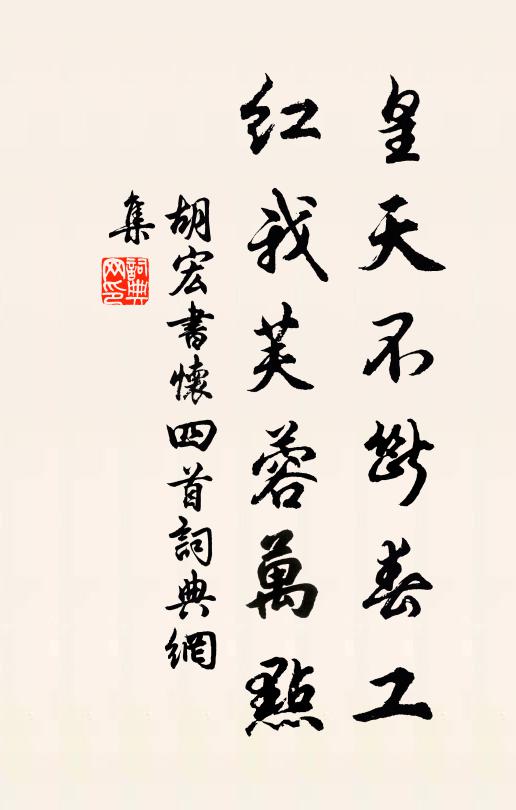 皇天不斷春工
紅我芙蓉萬點
胡宏書懷四首詞典網
集
詞典
网印